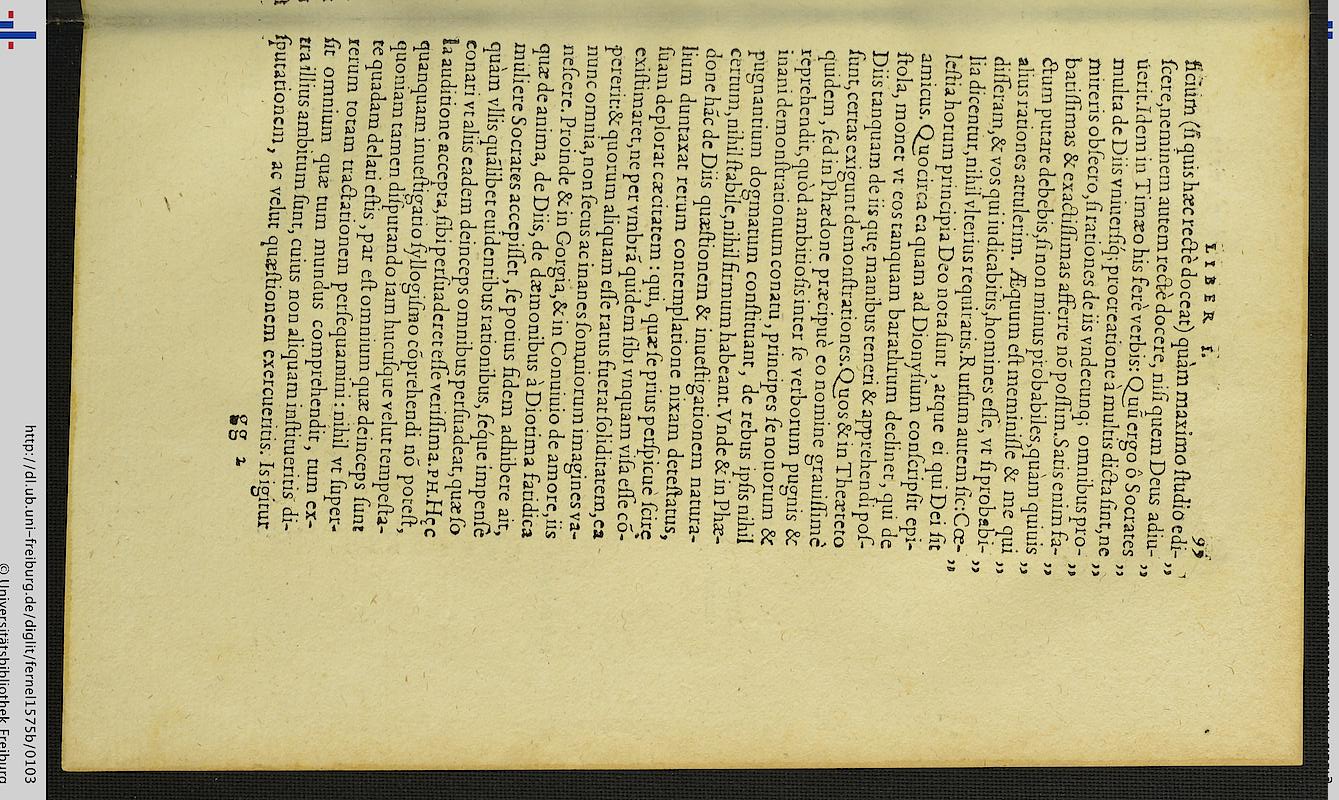 LIBER I. 99
ficium (si quis hæc rectè doceat) quàm maximo studio edi- ,,
scere, neminem autem rectè docere, nisi quem Deus adiu- ,,
uerit. Idem in Timæo his ferè verbis: Quũ ergo ô Socrates ,,
multa de Diis vniuersiq́; procreatione à multis dicta sint, ne ,,
mireris obsecro, si rationes de iis vndecunq; omnibus pro- ,,
batissimas & exactissimas afferre nõ possim. Satis enim fa- ,,
ctum putare debebis, si non minus probabiles, quàm quiuis ,,
alius rationes attulerim. Æquum est meminisse & me qui ,,
disseram, & vos qui iudicabitis, homines esse, vt si probabi- ,,
lia dicentur, nihil vlterius requiratis. Rursum autem sic: Cœ- ,,
lestia horum principia Deo nota sunt, atque ei qui Dei sit ,,
amicus. Quocirca ea quam ad Dionysium conscripsit epi-
stola, monet vt eos tanquam barathrum declinet, qui de
Diis tanquam de iis quę manibus teneri & apprehendi pos-
sunt, certas exigunt demonstrationes. Quos & in Theæteto
quidem, sed in Phædone præcipuè eo nomine grauissimè
reprehendit, quòd ambitiosis inter se verborum pugnis &
inani demonstrationum conatu, principes se nouorum &
pugnantium dogmatum constituant, de rebus ipsis nihil
certum, nihil stabile, nihil firmum habeant. Vnde & in Phæ-
done hãc de Diis quæstionem & inuestigationem natura-
lium duntaxat rerum contemplatione nixam detestatus,
suam deplorat cæcitatem: qui, quæ se prius perspicue scire
existimaret, ne per vmbrã quidem sibi vnquam visa esse cõ-
pererit: & quorum aliquam esse ratus fuerat soliditatem, ea
nunc omnia, non secus ac inanes somniorum imagines va-
nescere. Proinde & in Gorgia, & in Conuiuio de amore, iis
quæ de anima, de Diis, de dæmonibus à Diotima fatidica
muliere Socrates accepisset, se potius fidem adhibere ait,
quàm vllis quãlibet euidentibus rationibus, séque impensè
conati vt aliis eadem deinceps omnibus persuadeat, quæ so
la auditione accepta, sibi persuaderet esse verissima. PH. Hęc
quanquam inuestigatio syllogismo cõprehendi nõ potest,
quoniam tamen disputando iam hucusque velut tempesta-
te quadam delati estis, par est omnium quæ deinceps sunt
rerum totam tractationem persequamini: nihil vt super-
sit omnium quæ tum mundus comprehendit, tum ex-
tra illius ambitum sunt, cuius non aliquam institueritis di-
sputationem, ac velut quæstionem exercueritis. Is igitur
gg 2
http://dl.ub.uni-freiburg.de/diglit/fernel1575b/0103
© Universitätsbibliothek Freiburg